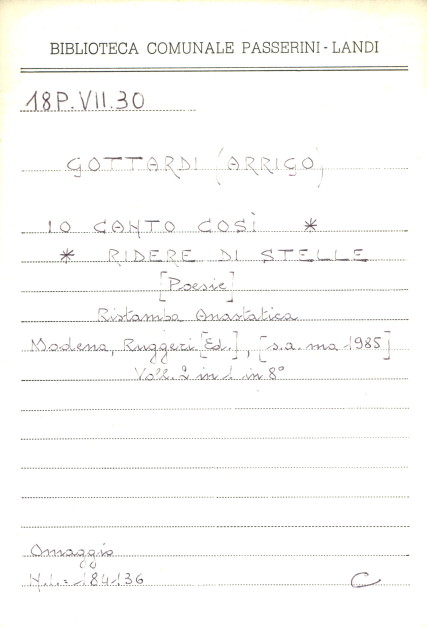 BIBLIOTECA COMUNALE PASSERINI-LANDI
18P.VII.30
GOTTARDI (ARRIGO)
IO CANTO COSÌ *
* RIDERE DI STELLE
[Poesie]
Ristampa Anastatica
Modena, Ruggeri [Ed.], [s.a. ma 1985]
Voll. 2 in 1. in 8°
Omaggio
N.i.= 184136 C